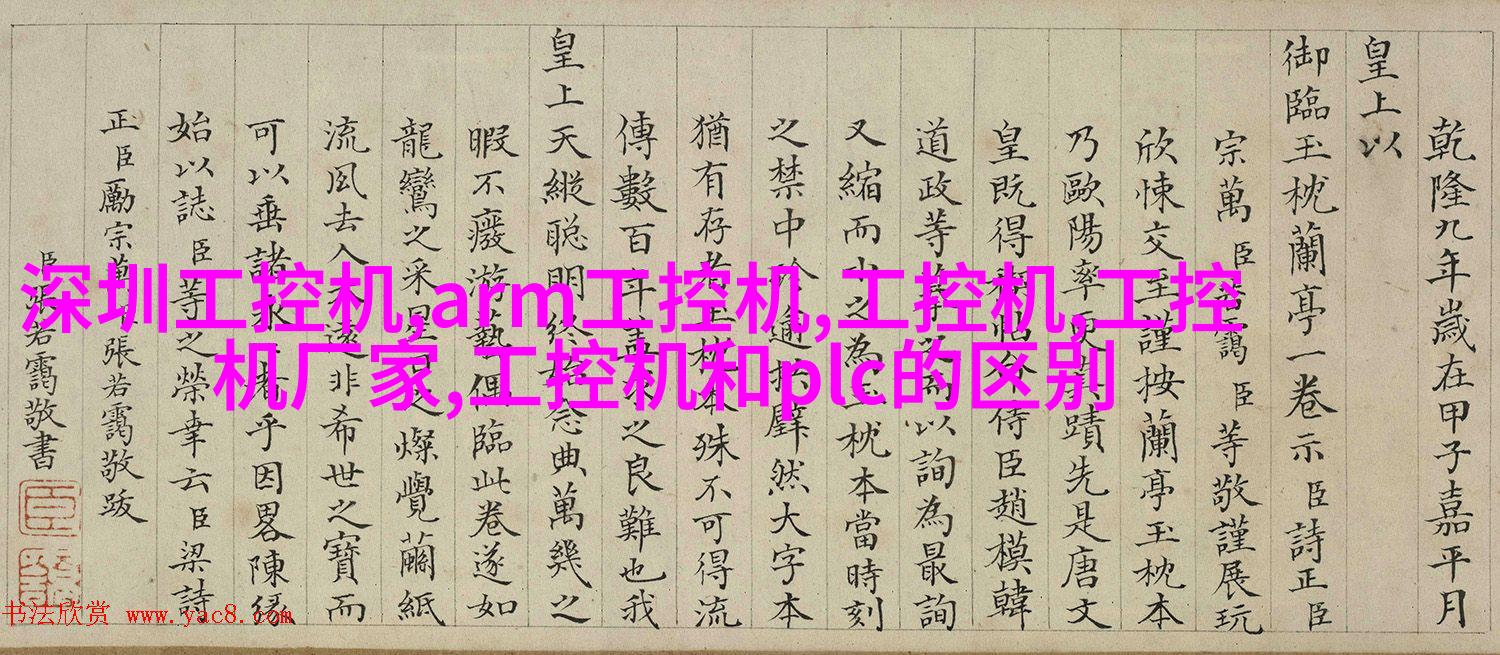 乾隆九年歲在甲子嘉平月
皇上以
御臨玉枕蘭亭一卷示臣詩正臣
宗萬臣若靄臣等敬謹展玩
欣悚交至謹按蘭亭玉枕本
乃歐陽率更真蹟先是唐文
皇既得
侍臣趙模韓
道政等
以詢為最詢
又縮而小之為玉枕本當時刻
之禁中
然大字本
猶有存者玉枕本殊不可得流
傳數百年
之良難也我
皇上天縱聰明終始念典萬幾之
暇不癈游藝偶臨此卷遂如
龍鸞之采星日之燦覺繭紙
流風去人不遠非希世之寶而
可以垂諸永
者乎因畧陳緣
始以誌臣等之榮幸云臣梁詩
正臣勵宗萬臣張若靄敬跋
臣張若靄敬書
深圳工控机,arm工控机,工控机,工控
机厂家,工控机和plc的区别
书法欣赏 www.yac8.com